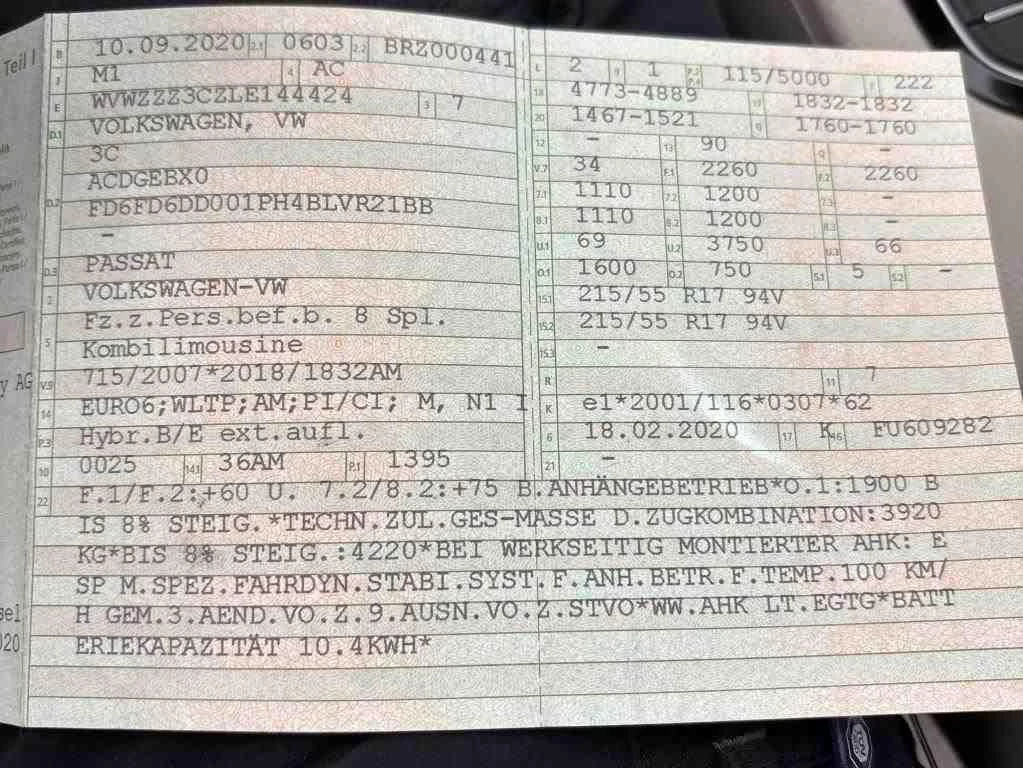 Teil I
B 10.09.2020 2.1 0603 2.2 BRZ000441
J M1 4 AC
E WVWZZZ3CZLE144424 3 7
D.1 VOLKSWAGEN, VW
3C
D.2 ACDGEBX0
FD6FD6DD001PH4BLVR21BB
–
D.3 PASSAT
2 VOLKSWAGEN-VW
5 Fz.z.Pers.bef.b. 8 Spl.
Kombilimousine
V.9 715/2007*2018/1832AM
14 EURO6;WLTP;AM;PI/CI; M, N1 I
P.3 Hybr.B/E ext.aufl.
10 0025 14.1 36AM P.1 1395
L 2 9 1 P.2 P.4 115/5000 T 222
18 4773-4889 19 1832-1832
20 1467-1521 G 1760-1760
12 – 13 90 Q –
V.7 34 F.1 2260 F.2 2260
7.1 1110 7.2 1200 7.3 –
8.1 1110 8.2 1200 8.3 –
U.1 69 U.2 3750 U.3 66
O.1 1600 O.2 750 S.1 5 S.2 –
15.1 215/55 R17 94V
15.2 215/55 R17 94V
15.3 –
R 11 7
K e1*2001/116*0307*62
6 18.02.2020 17 K 16 FU609282
21 –
22 F.1/F.2:+60 U. 7.2/8.2:+75 B.ANHÄNGEBETRIEB*O.1:1900 B
IS 8% STEIG.*TECHN.ZUL.GES-MASSE D.ZUGKOMBINATION:3920
KG*BIS 8% STEIG.:4220*BEI WERKSEITIG MONTIERTER AHK: E
SP M.SPEZ.FAHRDYN.STABI.SYST.F.ANH.BETR.F.TEMP.100 KM/
H GEM.3.AEND.VO.Z.9.AUSN.VO.Z.STVO*WW.AHK LT.EGTG*BATT
ERIEKAPAZITÄT 10.4KWH*
y AG
sel
020